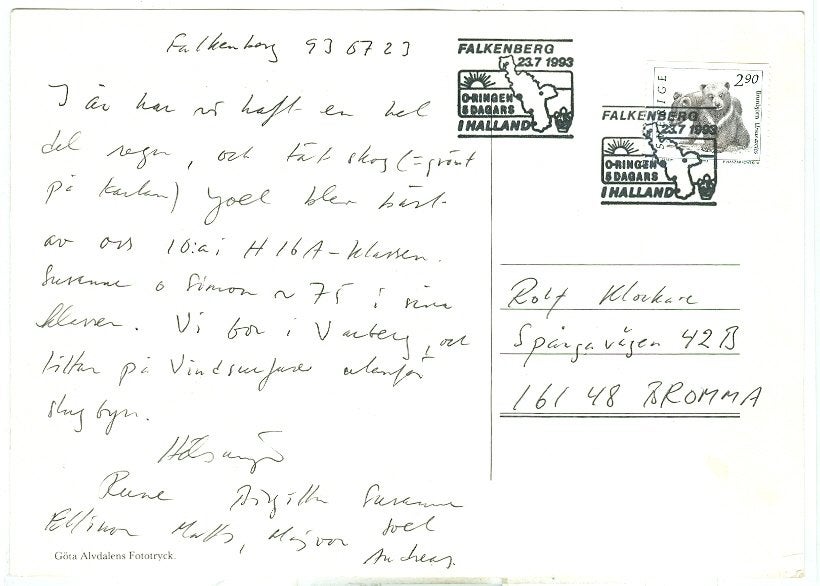 Falkenberg 93 07 23
I år har vi haft en hel
del regn, och tät skog (=grönt
på kartan) Joel blev bäst
av oss 10:a i H16A-klassen.
Susanne o Simon ~ 75 i sina
klasser. Vi bor i Varberg, och
tittar på Vindsurfare utanför
stugbyn.
Hälsningar
Rune Birgitta Susanne
Ellinor Matts, Majvor Joel
Andreas.
Göta Älvdalens Fototryck.
FALKENBERG
23.7 1993
O-RINGEN
5 DAGARS
I HALLAND
SVERIGE
2.90
FALKENBERG
23.7 1993
O-RINGEN
5 DAGARS
I HALLAND
Rolf Klockare
Spångavägen 42B
161 48 BROMMA